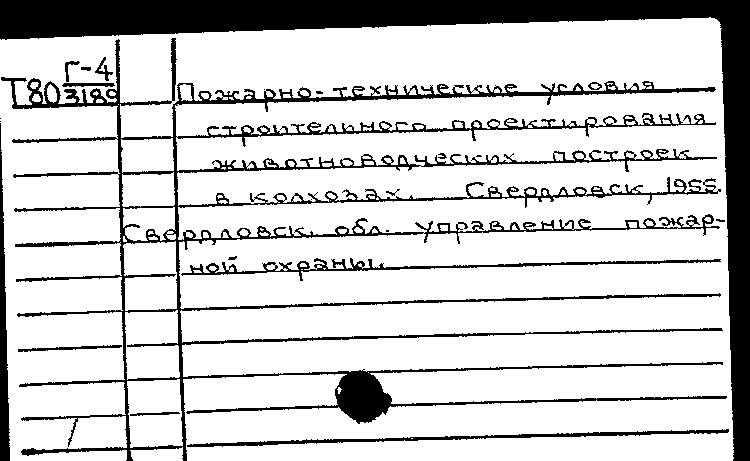 Г-4
Т80 3189 Пожарно-технические условия
строительного проектирования
животноводческих построек
в колхозах. Свердловск, 1955.
Свердловск. обл. управление пожар-
ной охраны.